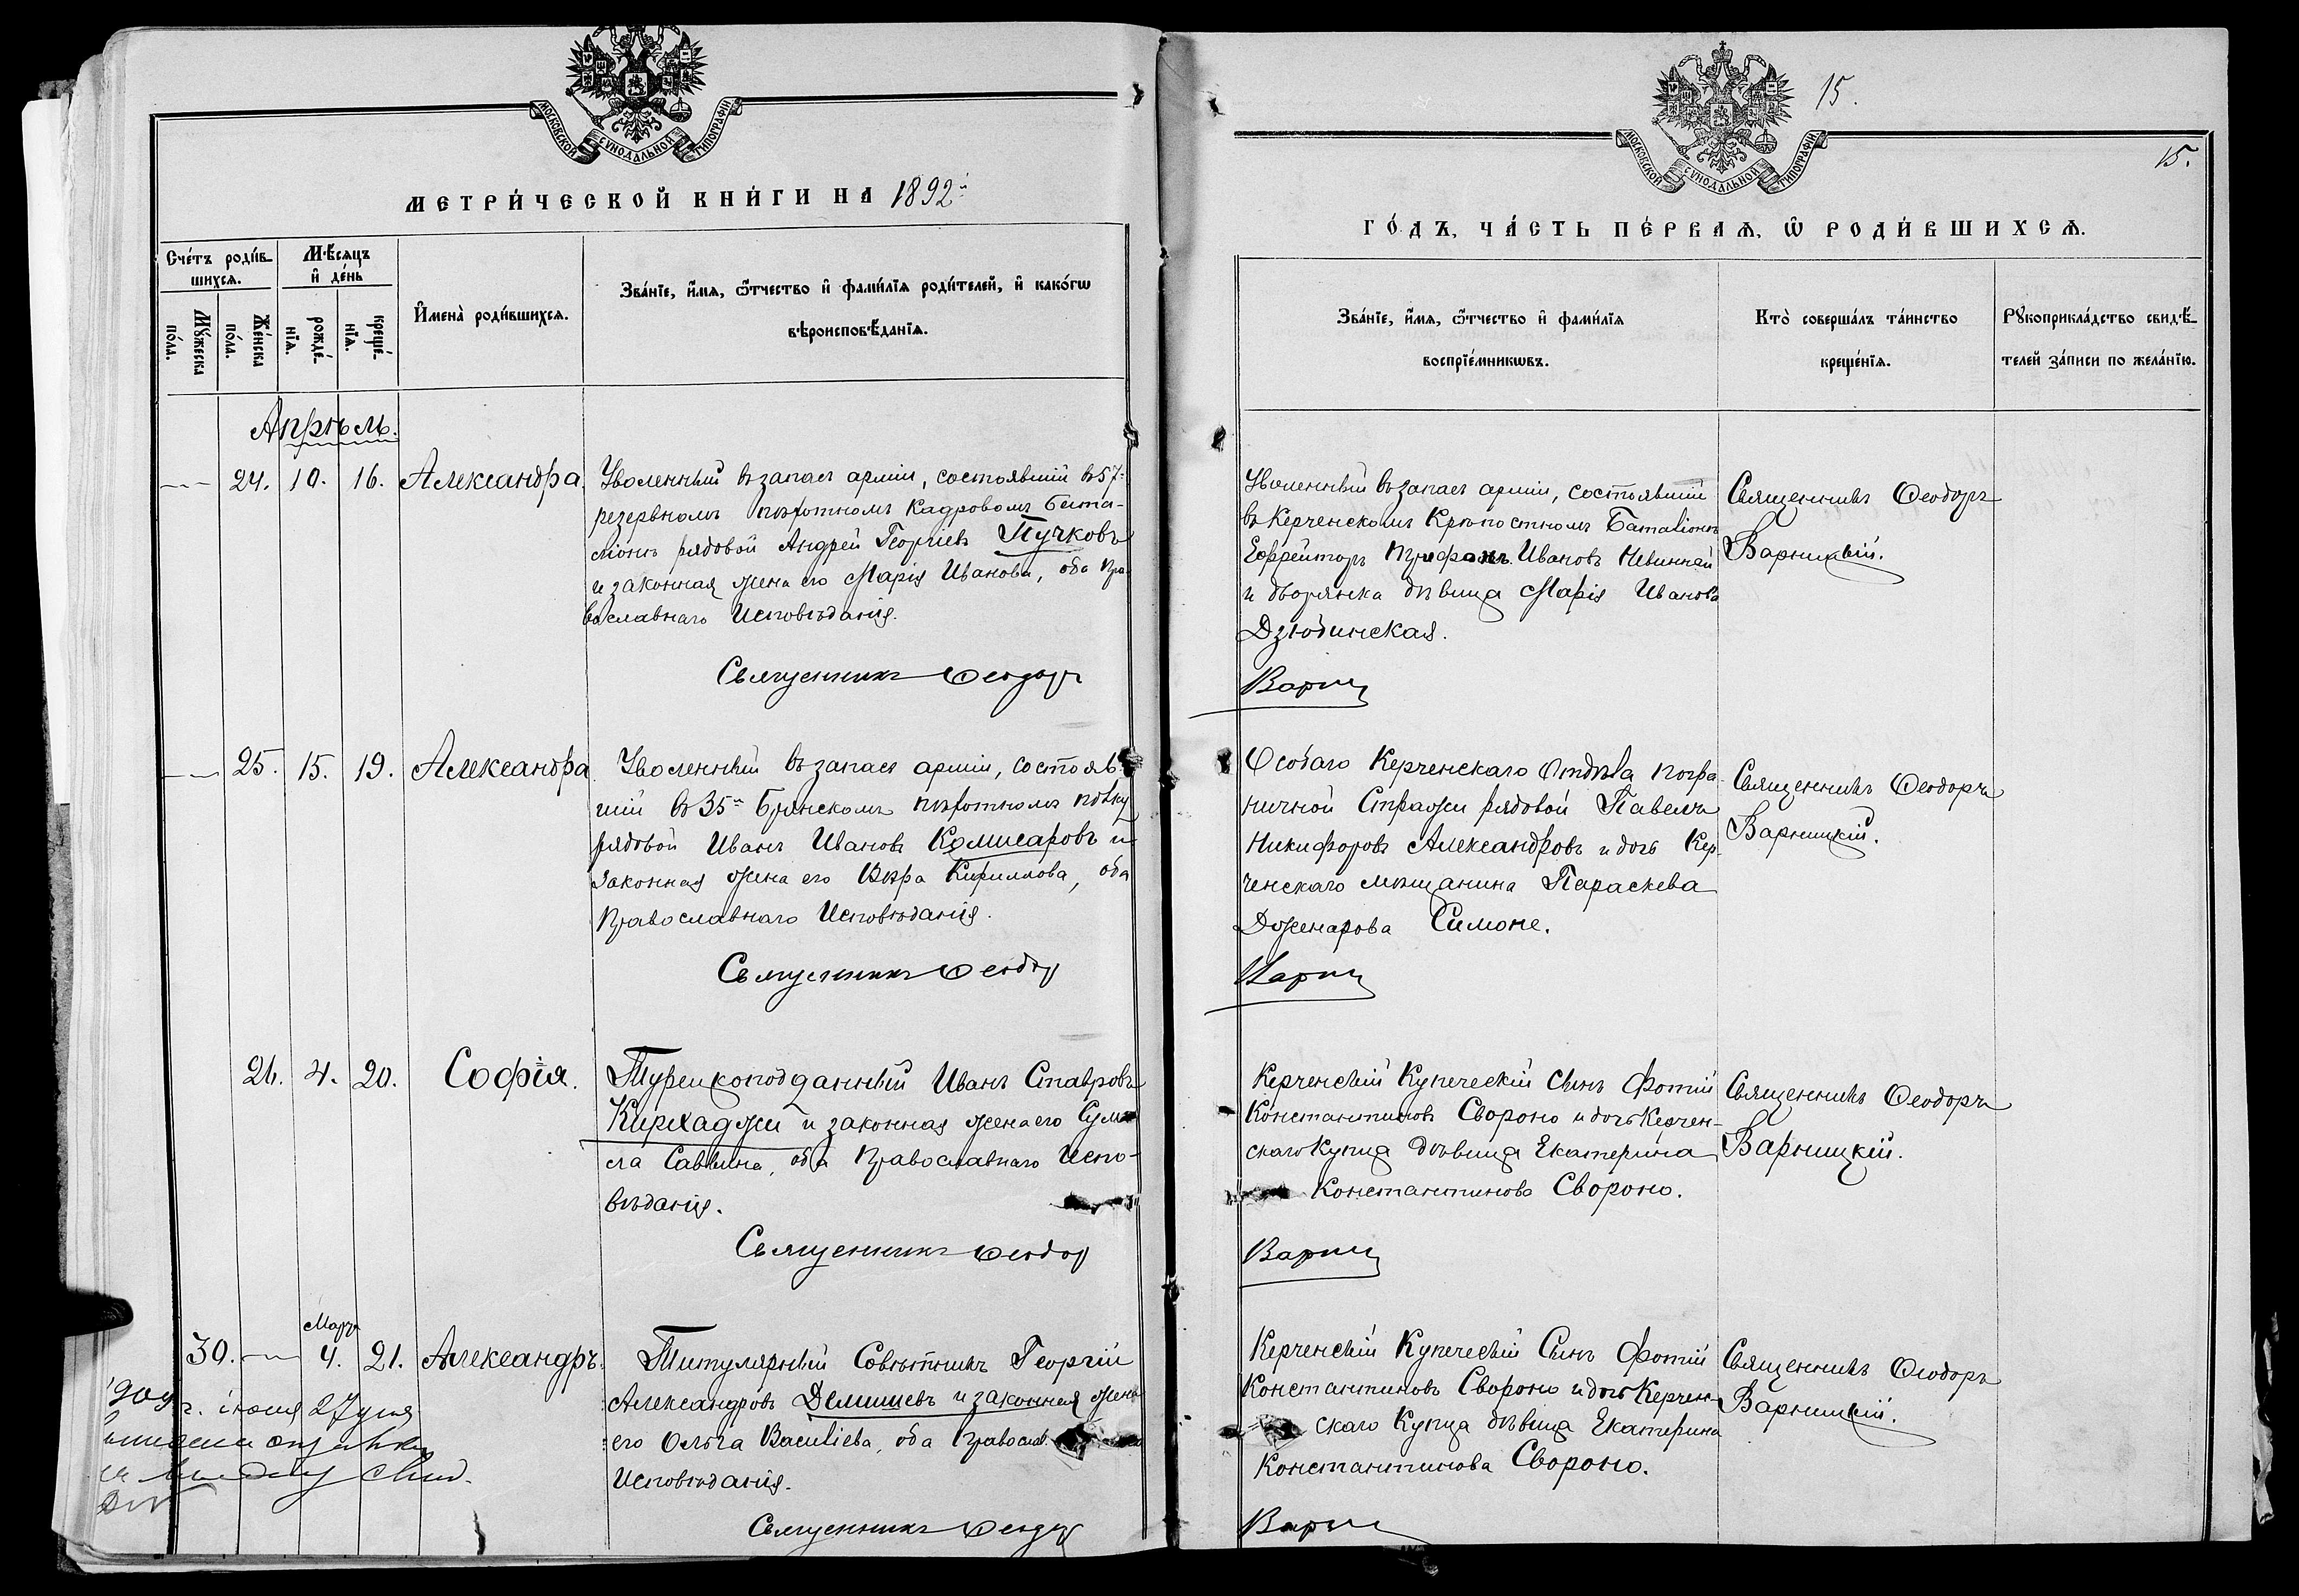 МОСКОВСКОЙ СѴНОДАЛЬНОЙ ТИПОГРАФІИ
МЕТРИ́ЧЕСКОЙ КНИ́ГИ НА 1892й
Сче́тъ роди́в-
шихсѧ.
Мꙋ́жеска
по́ла.
Же́нска
по́ла.
Мѣ́сѧцъ
и҆ де́нь
рожде́-
нїѧ.
креще́-
нїѧ.
И҆мена̀ роди́вшихсѧ.
Зва́нїе, и҆́мѧ, ѻ҆́тчество и҆ фами́лїѧ роди́телей, и҆ како́гѡ
вѣроисповѣ́данїѧ.
Апрѣль.
24. 10. 16. Александра.
Уволенный въ запасъ арміи, состоявшій въ 57=
резервномъ пѣхотномъ кадровомъ бата-
ліонѣ рядовой Андрей Георгіевъ Пучковъ
и законная жена его Марія Иванова, оба Пра-
вославнаго Исповѣданія.
Священникъ Ѳеодоръ
25. 15. 19. Александра
Уволенный въ запасъ арміи, состояв-
шій въ 35= Брянскомъ пѣхотномъ полку
рядовой Иванъ Ивановъ Комисаровъ и
законная жена его Вѣра Кириллова, оба
Православнаго Исповѣданія.
Священникъ Ѳеодор
26. 4. 20. Софія.
Турецкоподданный Иванъ Ставровъ
Кирхаджи и законная жена его
Саввина, оба Православнаго Испо-
вѣданія.
Священникъ Ѳеодор
30. Мар. 4. 21. Александръ.
Титулярный Совѣтникъ Георгій
Александровъ Демишевъ и законная жена
его Ольга Василіева, оба Православ.
Исповѣданія.
Священникъ Ѳеодор
г. іюля 27 дня
15.
МОСКОВСКОЙ СѴНОДАЛЬНОЙ ТИПОГРАФІИ
15.
ГО́ДЪ, ЧА́СТЬ ПЕ́РВАѦ, Ѡ҆ РОДИ́ВШИХСѦ.
Зва́нїе, и҆́мѧ, ѻ҆́тчество и҆ фами́лїѧ
воспрїе́мникѡвъ.
Кто̀ соверша́лъ та́инство
креще́нїѧ.
Рꙋкоприкла́дство свидѣ́-
телей за́писи по жела́нїю.
Уволенный въ запасъ арміи, состоявшій
въ Керченскомъ Крѣпостномъ Баталіонѣ
Ефрейторъ Трифонъ Ивановъ Невинный
и дворянка дѣвица Марія Иванова
Дзюбинская.
Варниц
Священникъ Ѳеодоръ
Варницкій.
Особаго Керченскаго Отдѣла погра-
ничной Стражи рядовой Павелъ
Никифоровъ Александровъ и дочь Кер-
ченскаго мѣщанина Параскева
Дженарова Симоне.
Варниц
Священникъ Ѳеодоръ
Варницкій.
Керченскій Купеческій сынъ Фотій
Константиновъ Свороно и дочь Керчен-
скаго Купца дѣвица Екатерина
Константинова Свороно.
Варниц
Священникъ Ѳеодоръ
Варницкій.
Керченскій Купеческій Сынъ Фотій
Константиновъ Свороно и дочь Керчен-
скаго Купца дѣвица Екатерина
Константинова Свороно.
Варниц
Священникъ Ѳеодоръ
Варницкій.